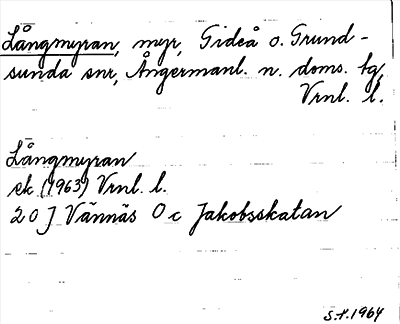 Långmyran, myr, Gideå o. Grund-
sunda snr, Ångermanl. n. doms. tg,
Vrnl. l.
Långmyran
ek (1963) Vrnl. l.
20 J Vännäs O c Jakobsskatan
S.F. 1964